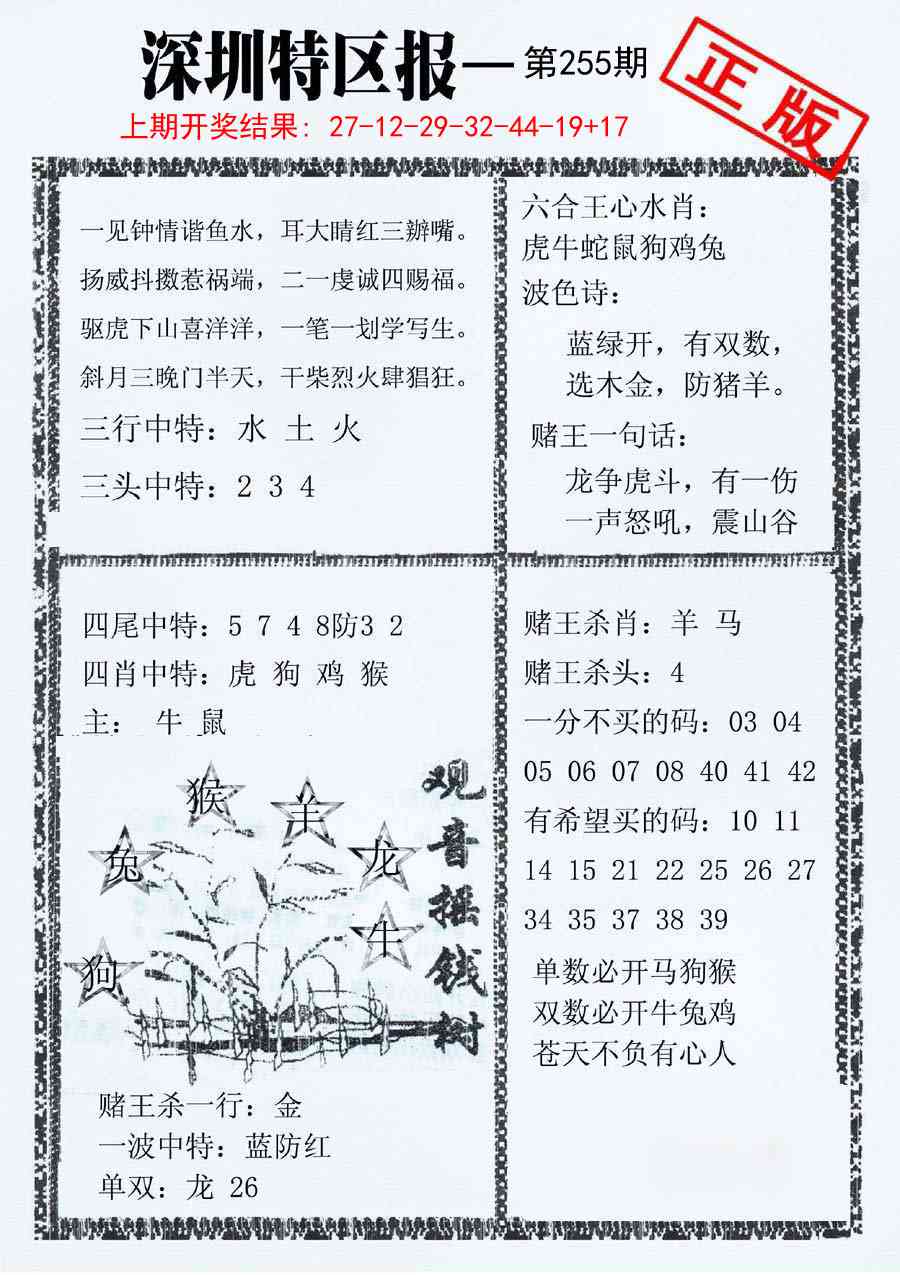 深圳特区报—第255期
正版
上期开奖结果: 27-12-29-32-44-19+17
一见钟情谐鱼水，耳大晴红三辦嘴。
扬威抖擞惹祸端，二一虔诚四赐福。
驱虎下山喜洋洋，一笔一划学写生。
斜月三晚门半天，干柴烈火肆猖狂。
三行中特：水 土 火
三头中特：2 3 4
六合王心水肖：
虎牛蛇鼠狗鸡兔
波色诗：
蓝绿开，有双数，
选木金，防猪羊。
赌王一句话：
龙争虎斗，有一伤
一声怒吼，震山谷
四尾中特：5 7 4 8防3 2
四肖中特：虎 狗 鸡 猴
主： 牛 鼠
猴
羊
兔
龙
牛
狗
观音摇钱树
赌王杀一行：金
一波中特：蓝防红
单双：龙 26
赌王杀肖：羊 马
赌王杀头：4
一分不买的码：03 04
05 06 07 08 40 41 42
有希望买的码：10 11
14 15 21 22 25 26 27
34 35 37 38 39
单数必开马狗猴
双数必开牛兔鸡
苍天不负有心人